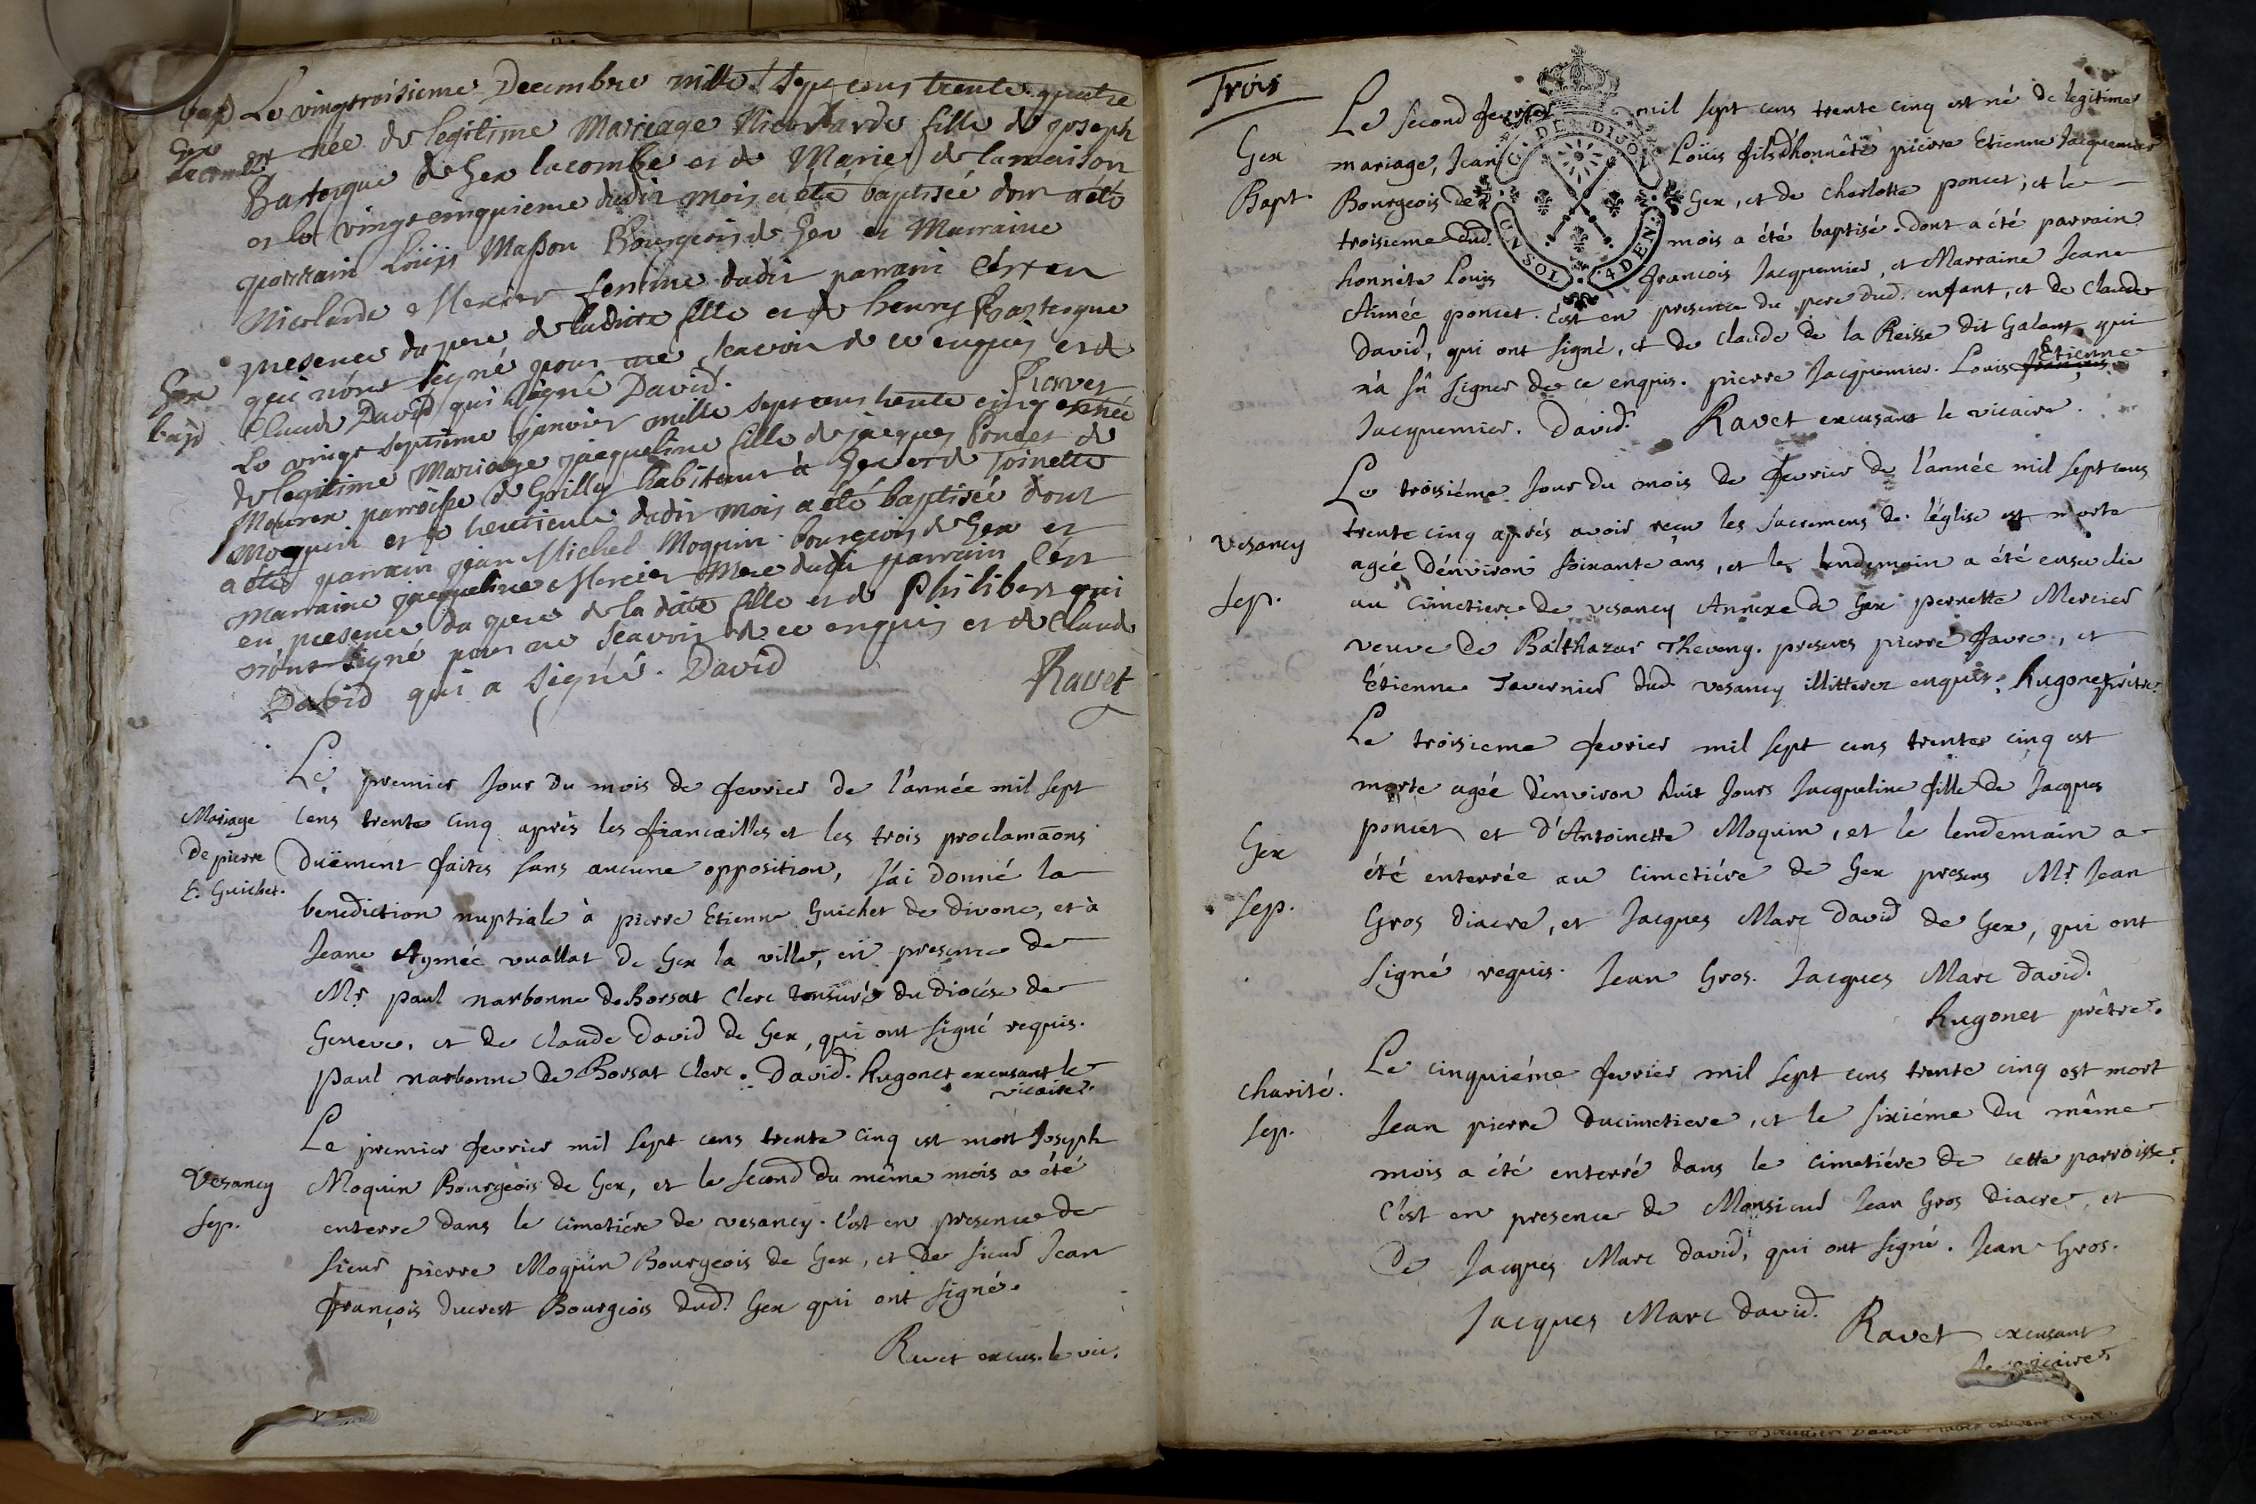 bap Le vingtroisieme Decembre mille sept cens trente quatre
Gex
Lacombe est née de legitime Mariage Nicolarde fille de joseph
Bastergue de Gex lacombe et de Marie de lamaison
et le vingt cinquieme dudit mois a été baptisée dont a été
parrain Loüis Masson Bourgeois de Gex et Marraine
Nicolarde Mercier femme dudit parrain C'ést en
presence du pere de ladite fille et de henry Bastergue
qui n'ónt signé pour ne scavoir de ce enquis et de
Claude David qui a signé David. Ravet
Gex
bap. Le vingt septiéme janvier mille sept cens trente cinq est née
de legitime Mariage jacqueline fille de jacques Poncet de
Mourex parroisse de Grilly habitant à Gex et de Toinette
Moquin et le trentieme dudit mois a été baptisée dont
a été parrain jean Michel Moquin bourgeois de Gex et
marraine jacqueline Mercier Mere dudit parrain C'ést
en presence du pere de la dite fille et de Philibert qui
n'ónt signé pour ne scavoir de ce enquis et de Claude
David qui a signé. David Ravet
Le premier Jour du mois de fevrier de l'année mil sept
Mariage
de pierre
E. Guichet.
cens trente cinq après les fiancailles et les trois proclamãons
duëment faites sans aucune opposition, J'ai donné la
benediction nuptiale à pierre Etienne Guichet de divonc, et à
Jeane Aymée vuallat de Gex la ville, en presence de
Mr. paul narbonne de Borsat Clerc tonsuré du diocése de
Geneve, et de claude david de Gex, qui ont signé requis.
paul narbonne de Borsat Clerc. david. Rugonet excusant le
vicaire.
Le premier fevrier mil sept cens trente cinq est mort Joseph
Vesancy
Sep.
Moquin Bourgeois de Gex, et le second du même mois a été
enterre dans le cimetiére de vesancy. C'est en presence de
sieur pierre Moquin Bourgeois de Gex, et de sieur Jean
françois ducrest Bourgeois dud. Gex qui ont signé.
Ravet excus. le vic.
Trois
Le second fevrier mil sept cens trente cinq est né de legitime
Gex
Bapt.
mariage, Jean Loüis fils d'honnête pierre Etienne Jacquemier
Bourgeois de Gex, et de charlotte poncet, et le
troisieme dud. mois a été baptisé. dont a été parrain
honnéte Louis francois Jacquemier, et Marraine Jeane
Aimée poncet. C'est en presence du pere dud. enfant, et de claude
david, qui ont signé, et de claude de la Reisse dit Galant qui
n'a sû signer de ce enquis. pierre Jacquemier. Louis françois Etienne
Jacquemier. david. Ravet excusant le vicaire.
C. DE DIJON
U. 1 SOL 4 DEN.
Le troisiéme Jour du mois de fevrier de l'année mil sept cens
Vesancy
Sep.
trente cinq aprés avoir reçu les sacremens de l'église est morte
agée d'énviron soixante ans, et le lendemain a été ensevelie
au cimetiere de vesancy Annexe de Gex pernette Mercier
veuve de Balthazar Theveny. presens pierre favre, et
Etienne Tavernier dud. vesancy illitterez enquis. Rugonet prêtre.
Le troisieme fevrier mil sept cens trente cinq est
morte agée d'environ huit Jours Jacqueline fille de Jacques
Gex
Sep.
poncet et d'Antoinette Moquin, et le lendemain a
été enterrée au cimetiére de Gex presens Mr. Jean
Gros diacre, et Jacques Marc david de Gex, qui ont
signé requis. Jean Gros. Jacques Marc david.
Rugonet prêtre.
Le cinquiéme fevrier mil sept cens trente cinq est mort
Charité.
Sep.
Jean pierre ducimetiere, et le sixiéme du même
mois a été enterré dans le cimetiére de cette parroisse.
C'est en presence de Monsieur Jean Gros diacre, et
de Jacques Marc david, qui ont signé. Jean Gros.
Jacques Marc david. Ravet excusant
le vicaire